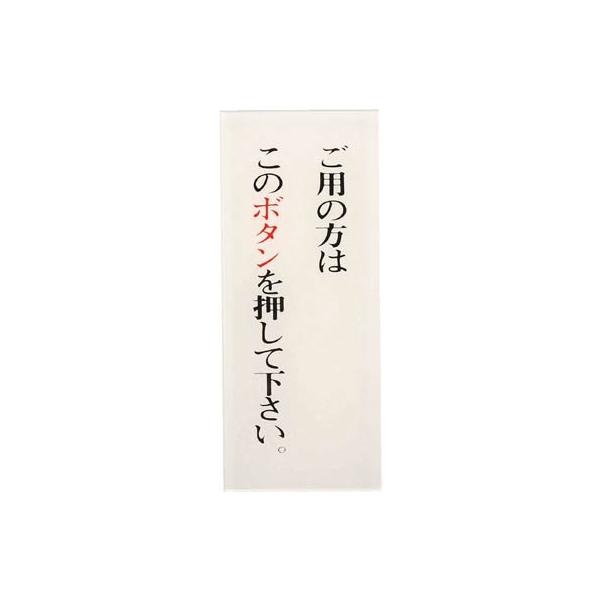 ご用の方は
このボタンを押して下さい。